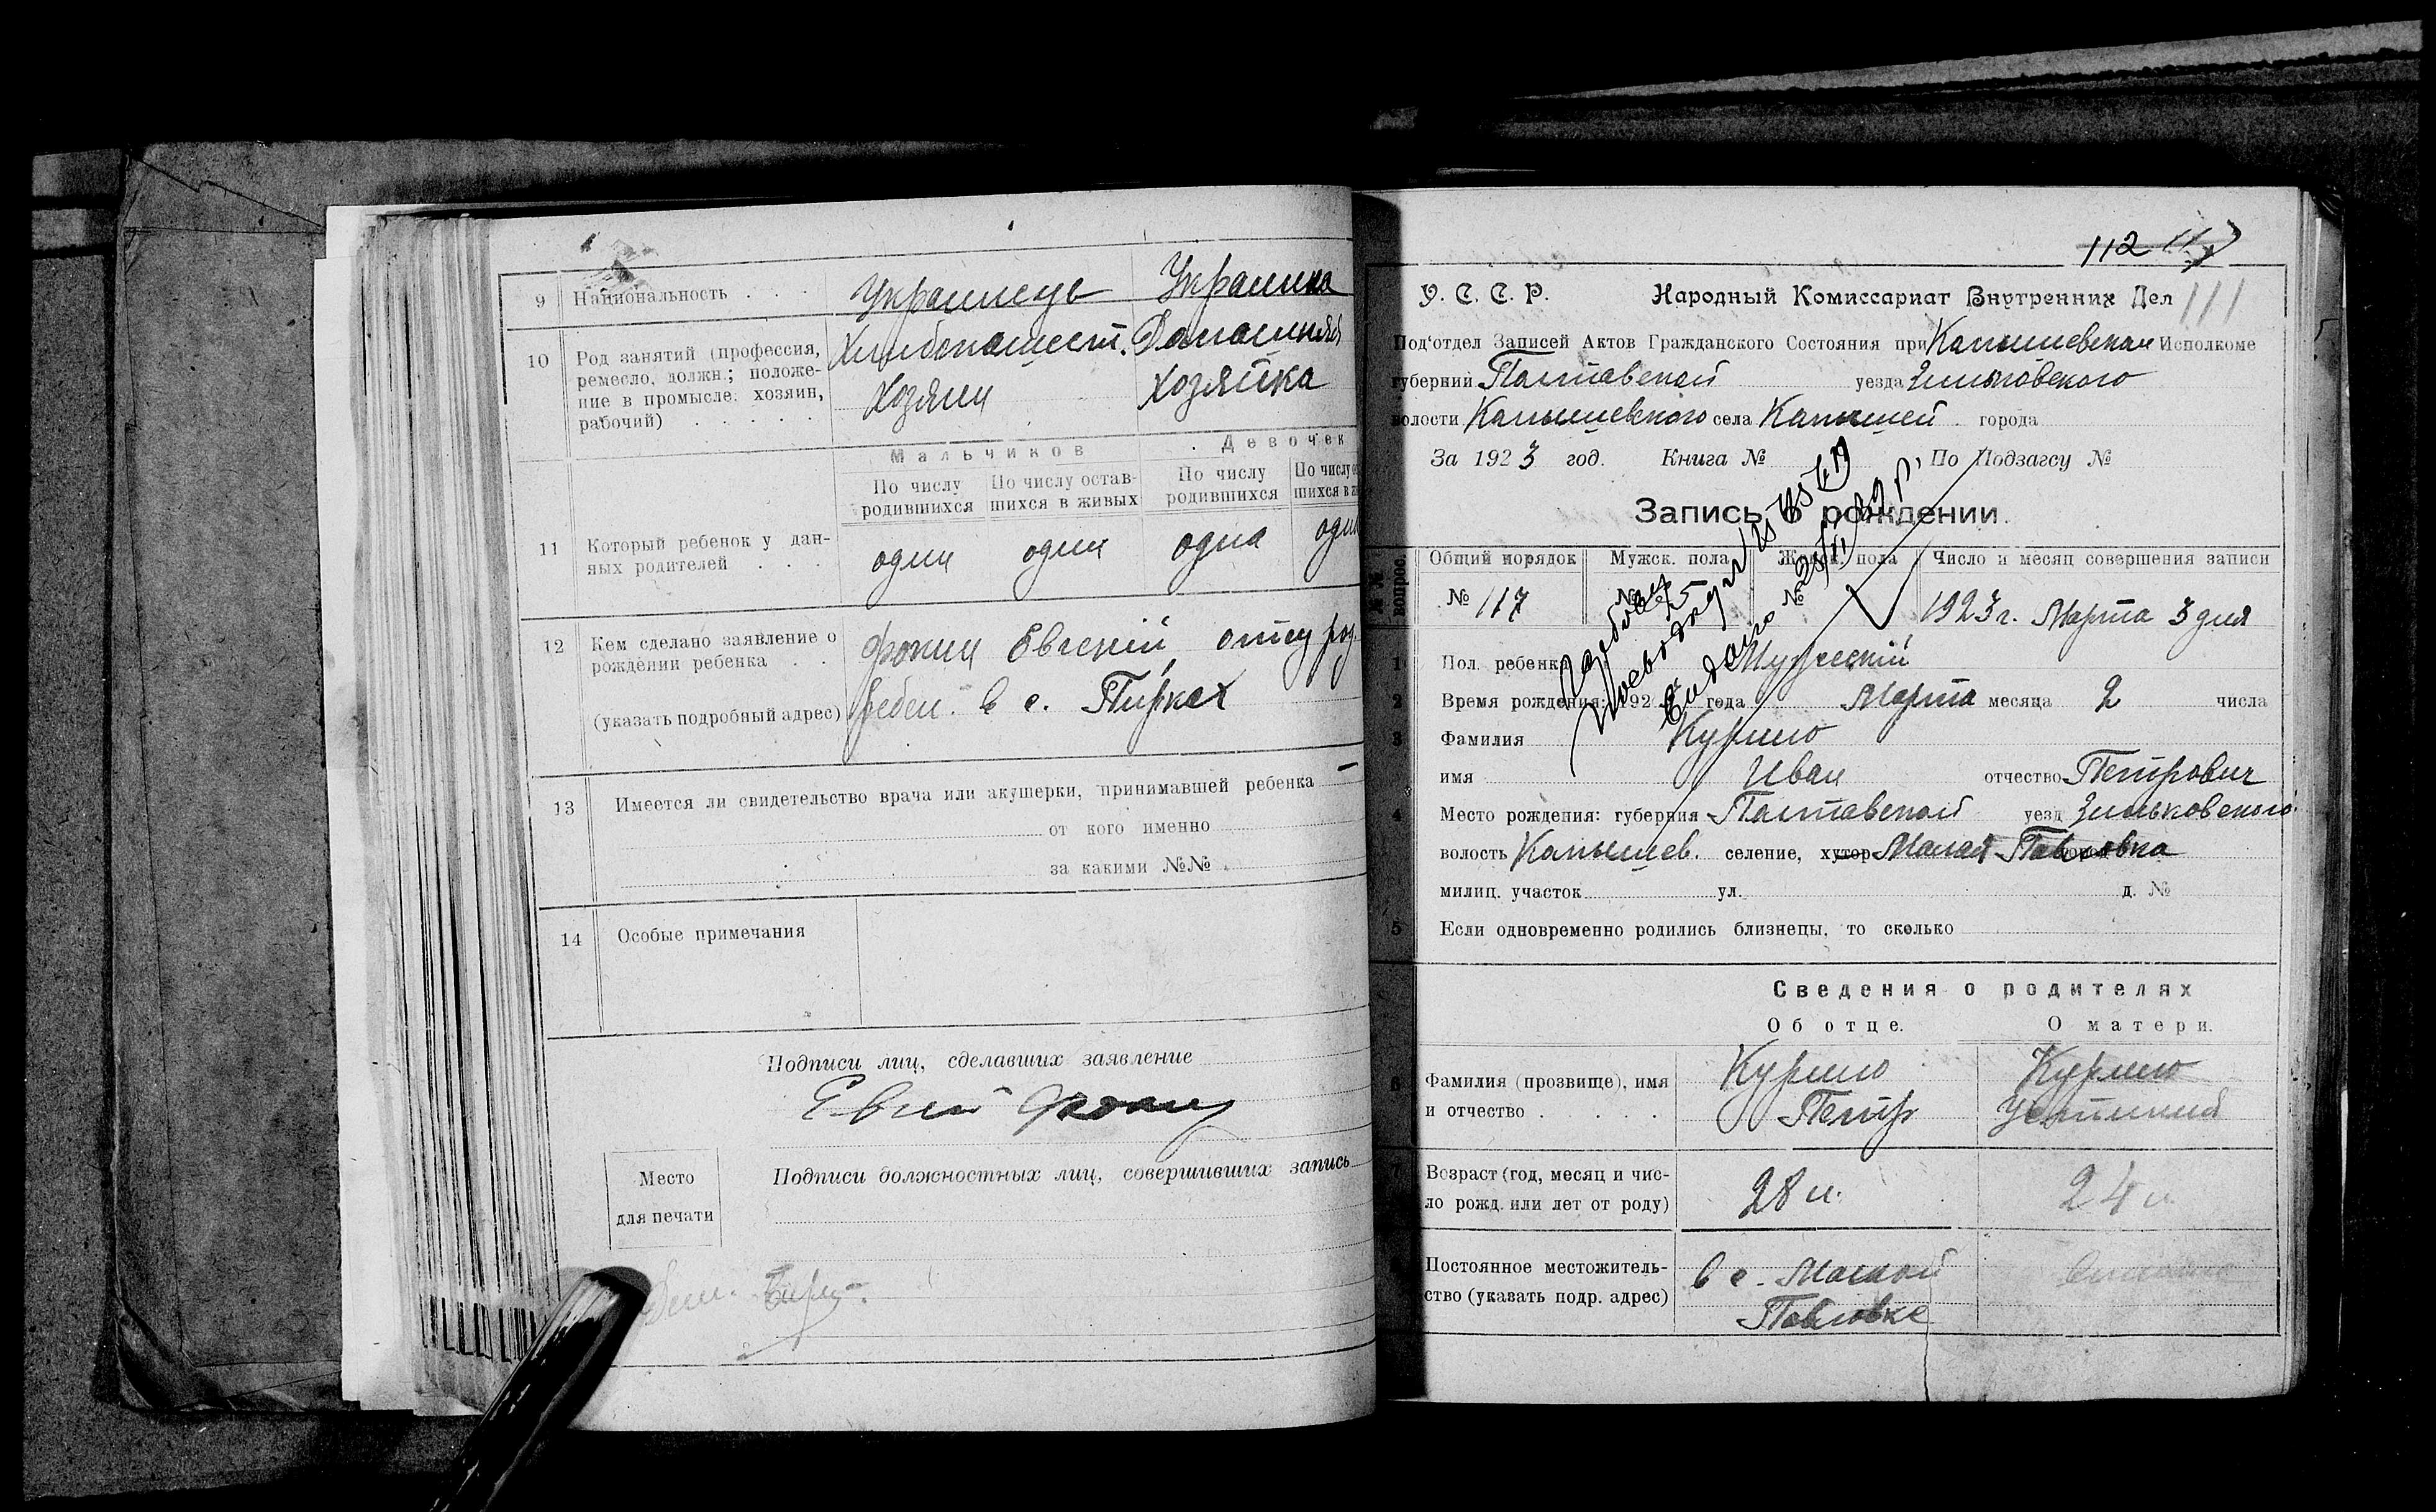 9 Национальность . . . Украинець Украинка
10 Род занятий (профессия,
ремесло, должн.; положе-
ние в промысле: хозяин,
рабочий) . . . .
Хлибопашест. Домашняя
Хозяин Хозяйка
Мальчиков Девочек
По числу родившихся
По числу остав-
шихся в живых
По числу
родившихся
По числу
11 Который ребенок у дан-
ных родителей . . .
один один одна
12 Кем сделано заявление о
рождении ребенка . .
(указать подробный адрес)
Фомин Евгений отец
в с. Пирках
13 Имеется ли свидетельство врача или акушерки, принимавшей ребенка —
от кого именно
за какими №№
14 Особые примечания
Подписи лиц, сделавших заявление
Место
для печати
Подписи должностных лиц, совершивших запись
112 117
У. С. С. Р. Народный Комиссариат Внутренних Дел 111
Под'отдел Записей Актов Гражданского Состояния при Исполкоме
губерний Полтавской уезда Зиньковского
волости села города
За 1923 год. Книга № По Подзагсу №
Запись о рождении.
№№ вопрос.
Общий порядок Мужск. пола Женск. пола Число и месяц совершения записи
№ 117 № № 1923 г. Марта 3 дня
1 Пол. ребенка Мужеский
2 Время рождения: 192 года Марта месяца 2 числа
3 Фамилия Курило
имя Иван отчество Петрович
4 Место рождения: губерния Полтавской уезд Зиньковского
волость селение, хутор Малая Павловка
милиц. участок ул. д. №
5 Если одновременно родились близнецы, то сколько
Сведения о родителях
Об отце. О матери.
6 Фамилия (прозвище), имя
и отчество . . . .
Курило Петр
Курило Устиния
7 Возраст (год, месяц и чис-
ло рожд. или лет от роду)
28 л. 24 л.
Постоянное местожитель-
ство (указать подр. адрес)
в с. Малой
Павловке